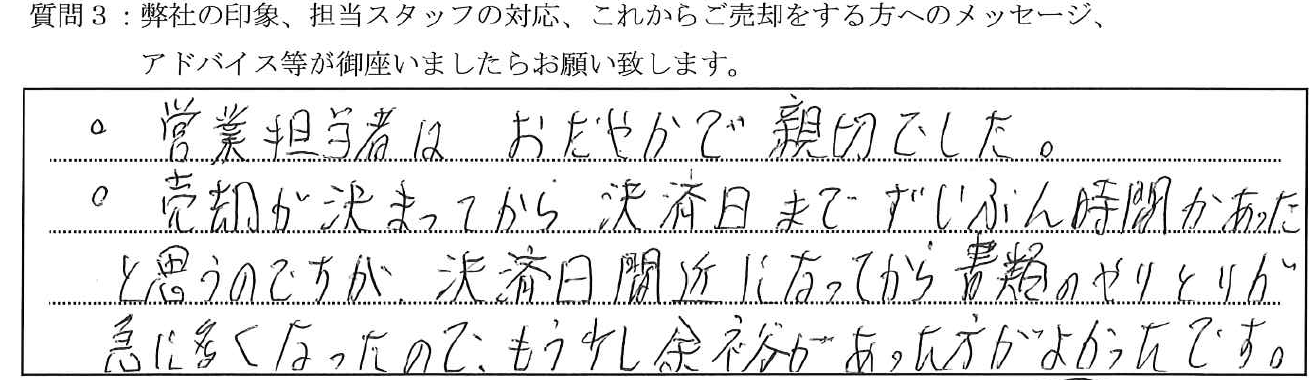 質問３：弊社の印象、担当スタッフの対応、これからご売却をする方へのメッセージ、
アドバイス等が御座いましたらお願い致します。
。営業担当者は おだやかで 親切でした。
。売却が決まってから 決済日まで ずいぶん時間があった
と思うのですが、決済日間近になってから書類のやりとりが
急に多くなったので、もう少し余裕があった方がよかったです。